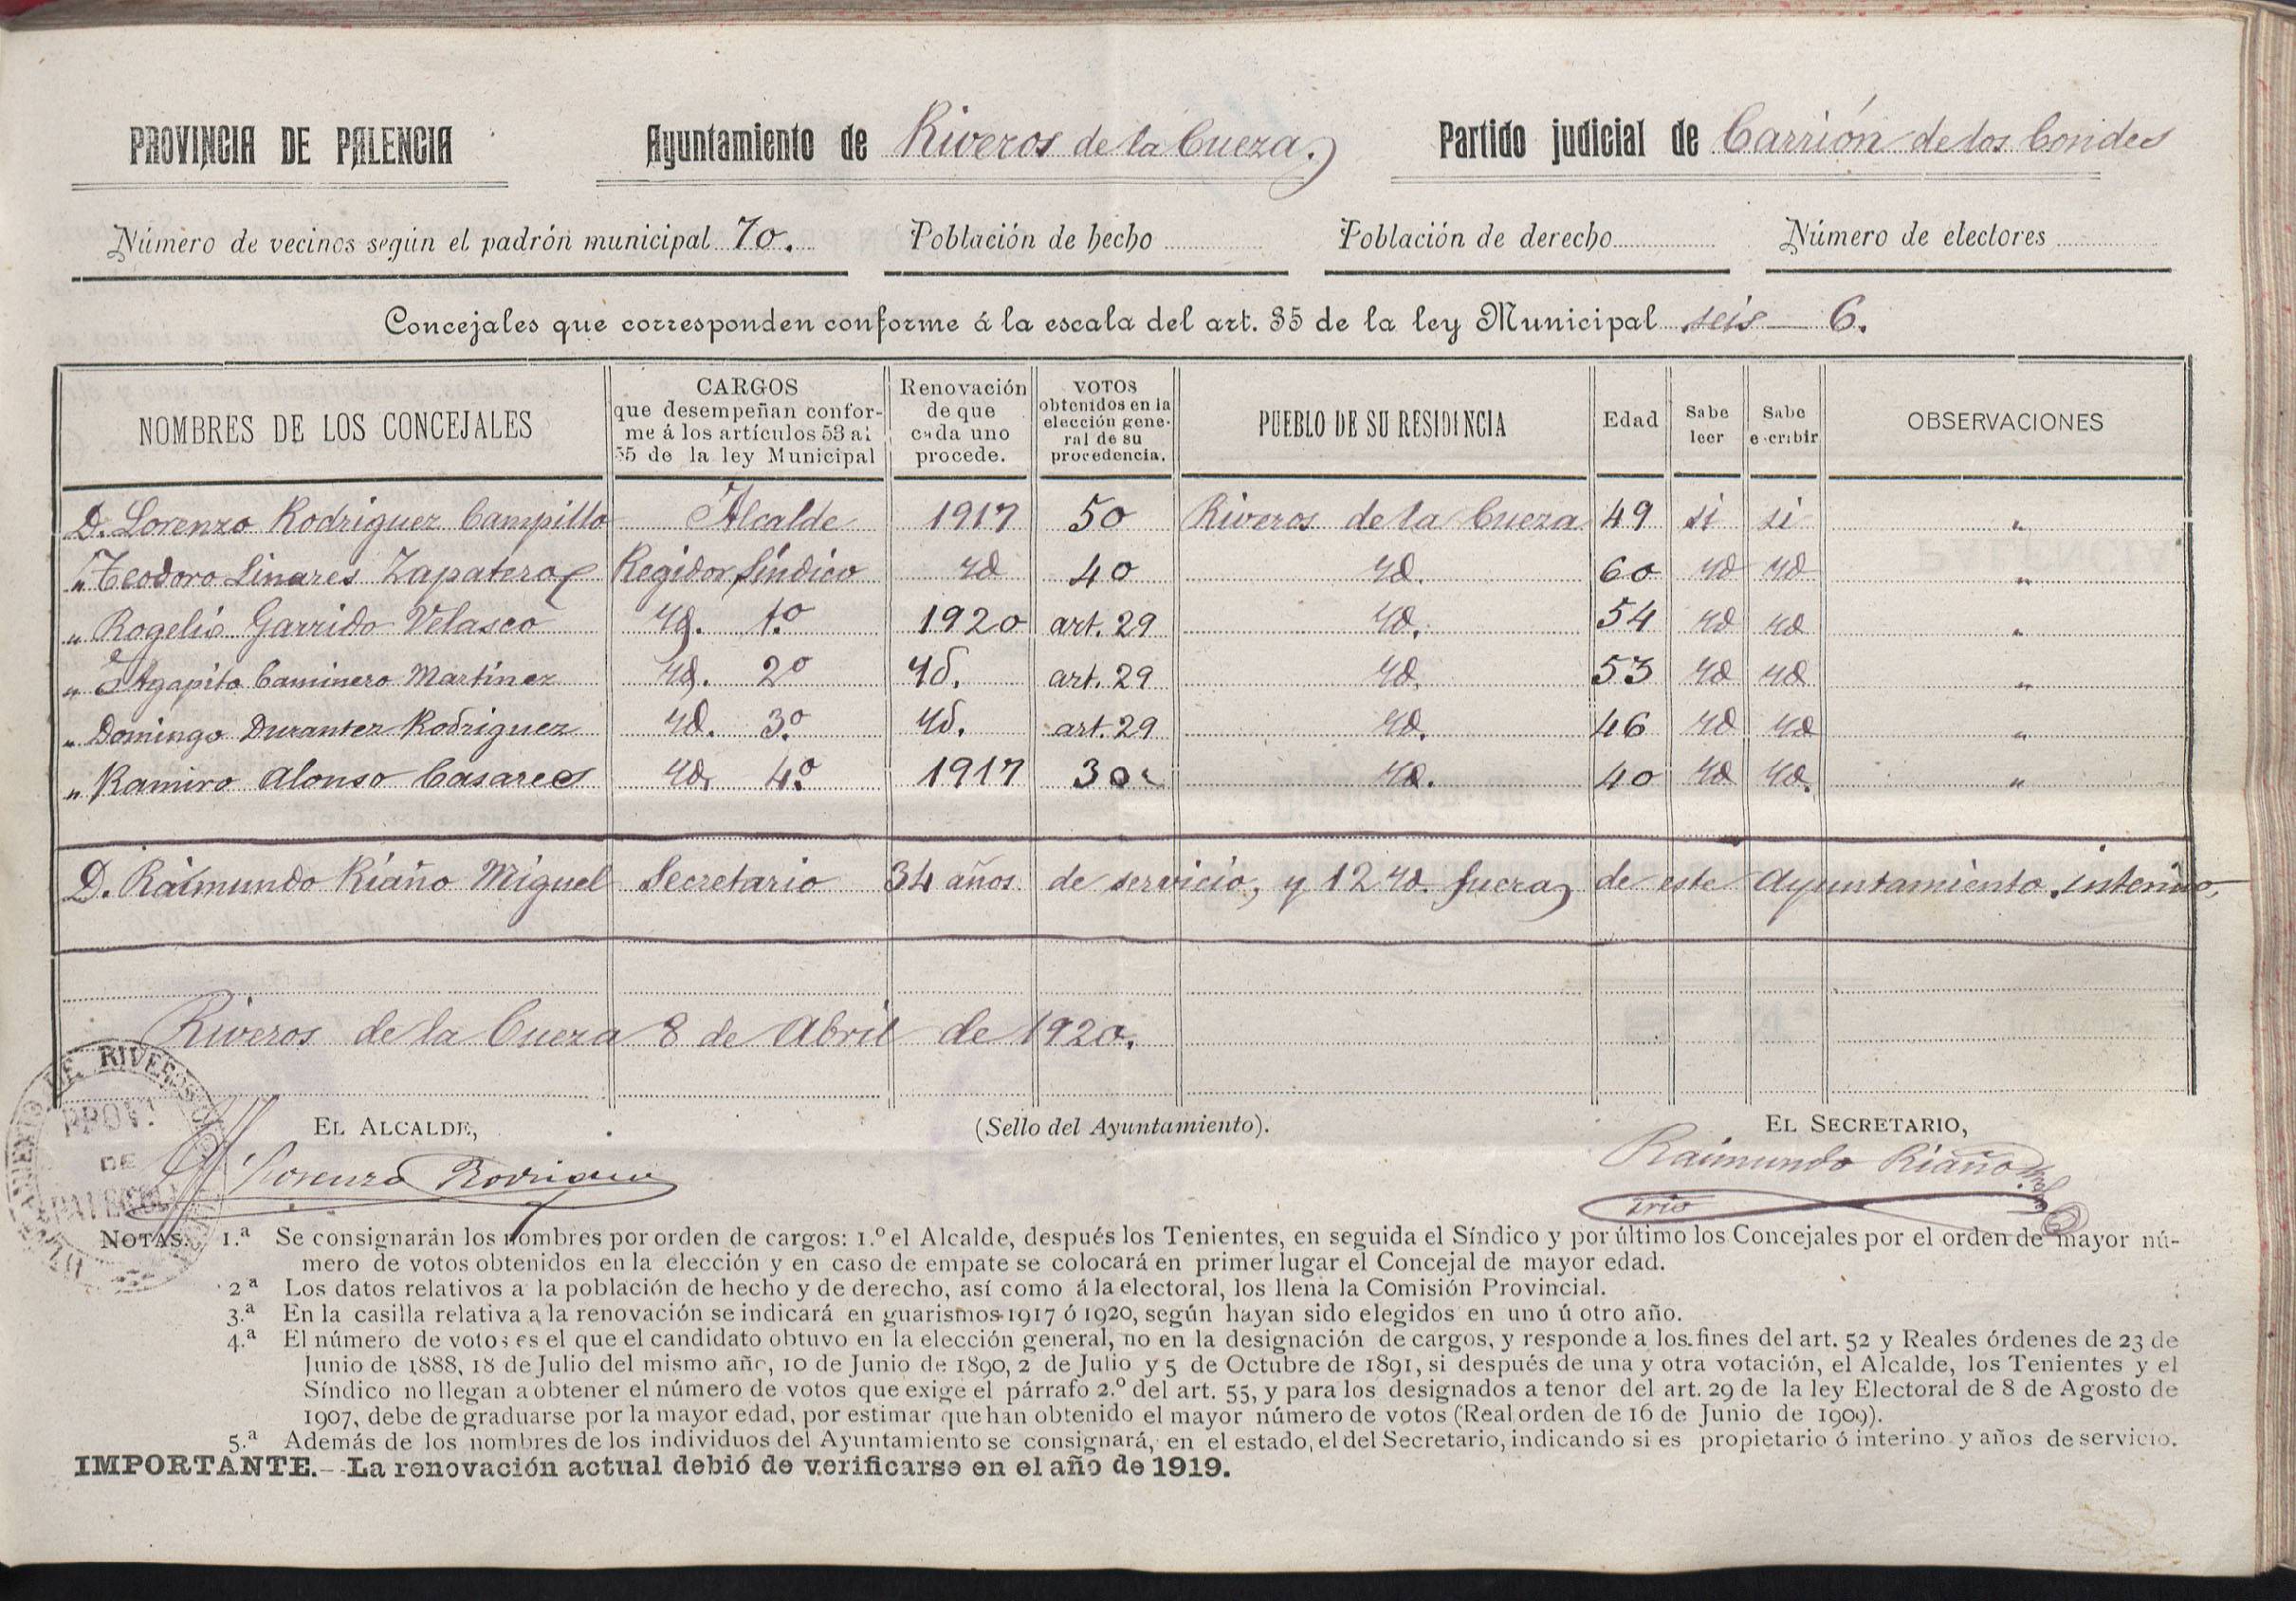 PROVINCIA DE PALENCIA Ayuntamiento de Riveros de la Cueza. Partido judicial de Carrión de los Condes
Número de vecinos según el padrón municipal 70. Población de hecho Población de derecho Número de electores
Concejales que corresponden conforme á la escala del art. 35 de la ley Municipal seis — 6.
NOMBRES DE LOS CONCEJALES
CARGOS
que desempeñan confor-
me á los artículos 53 al
55 de la ley Municipal
Renovación
de que
cada uno
procede.
VOTOS
obtenidos en la
elección gene-
ral de su
procedencia.
PUEBLO DE SU RESIDENCIA
Edad
Sabe
leer
Sabe
escribir
OBSERVACIONES
D. Lorenzo Rodriguez Campillo Alcalde 1917 50 Riveros de la Cueza 49 si si "
" Teodoro Linares Zapatero Regidor Síndico id 40 id. 60 id id "
" Rogelio Garrido Velasco id. 1.º 1920 art. 29 id. 54 id id "
" Agapito Caminero Martínez id. 2º id. art. 29 id. 53 id id "
" Domingo Durantez Rodriguez id. 3.º id. art. 29 id. 46 id id "
" Ramiro Alonso Casares id. 4.º 1917 30 id. 40 id id. "
D. Raimundo Riaño Miguel Secretario 34 años de servicio, y 12 id. fuera de este Ayuntamiento, interino,
Riveros de la Cueza 8 de Abril de 1920.
EL ALCALDE, (Sello del Ayuntamiento). EL SECRETARIO,
Lorenzo Rodriguez
Raimundo Riaño
DE RIVEROS
PROV.
DE
PALENCIA
NOTAS. 1.ª Se consignarán los nombres por orden de cargos: 1.º el Alcalde, después los Tenientes, en seguida el Síndico y por último los Concejales por el orden de mayor nú-
mero de votos obtenidos en la elección y en caso de empate se colocará en primer lugar el Concejal de mayor edad.
2ª Los datos relativos a la población de hecho y de derecho, así como á la electoral, los llena la Comisión Provincial.
3.ª En la casilla relativa a la renovación se indicará en guarismos 1917 ó 1920, según hayan sido elegidos en uno ú otro año.
4.ª El número de votos es el que el candidato obtuvo en la elección general, no en la designación de cargos, y responde a los fines del art. 52 y Reales órdenes de 23 de
Junio de 1888, 18 de Julio del mismo año, 10 de Junio de 1890, 2 de Julio y 5 de Octubre de 1891, si después de una y otra votación, el Alcalde, los Tenientes y el
Síndico no llegan a obtener el número de votos que exige el párrafo 2.º del art. 55, y para los designados a tenor del art. 29 de la ley Electoral de 8 de Agosto de
1907, debe de graduarse por la mayor edad, por estimar que han obtenido el mayor número de votos (Real orden de 16 de Junio de 1909).
5.ª Además de los nombres de los individuos del Ayuntamiento se consignará, en el estado, el del Secretario, indicando si es propietario ó interino y años de servicio.
IMPORTANTE.—La renovación actual debió de verificarse en el año de 1919.